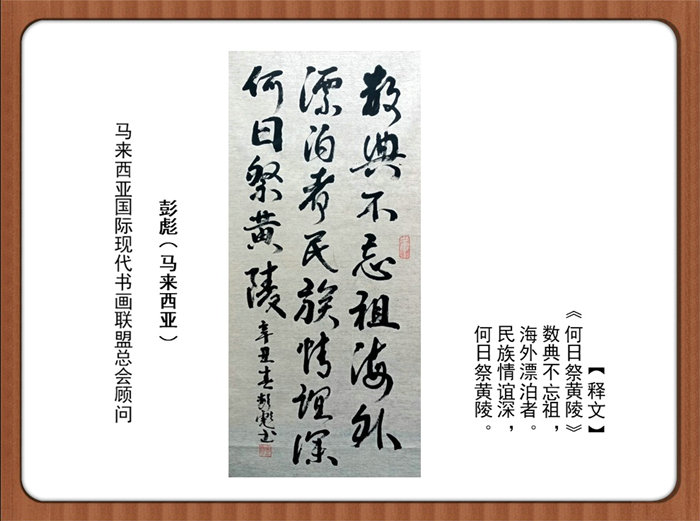 【释文】
《何日祭黄陵》
数典不忘祖，
海外漂泊者。
民族情谊深，
何日祭黄陵。
数典不忘祖海外
漂泊者民族情谊深
何日祭黄陵
辛丑春彭彪书
彭彪（马来西亚）
马来西亚国际现代书画联盟总会顾问